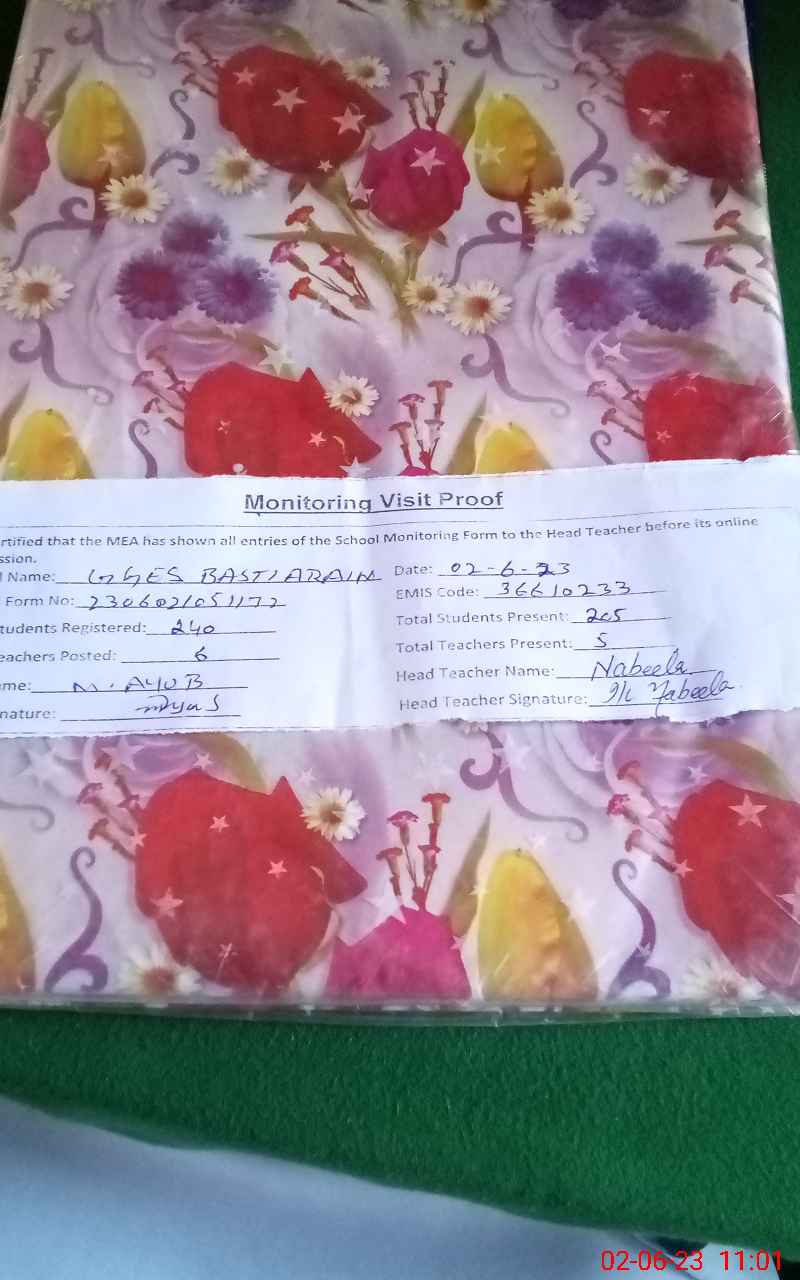 Monitoring Visit Proof
rtified that the MEA has shown all entries of the School Monitoring Form to the Head Teacher before its online
ssion.
l Name: GGES BASTI ARAIN Date: 02-6-23
Form No: 2306021051172 EMIS Code: 36610233
tudents Registered: 240 Total Students Present: 205
eachers Posted: 6 Total Teachers Present: 5
me: M. AYUB Head Teacher Name: Nabeela
nature: Head Teacher Signature: I/C Nabeela
02-06-23 11:01